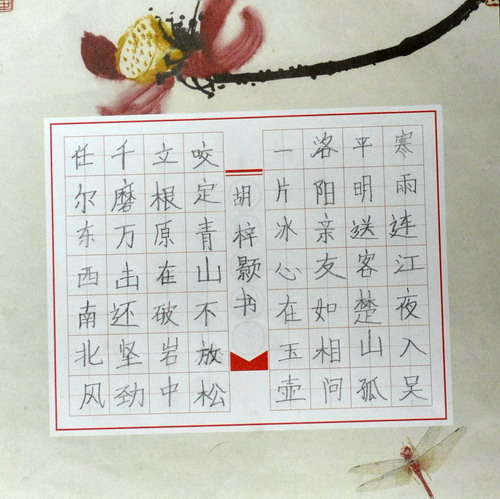 寒雨连江夜入吴
平明送客楚山孤
洛阳亲友如相问
一片冰心在玉壶
胡梓颢书
咬定青山不放松
立根原在破岩中
千磨万击还坚劲
任尔东西南北风